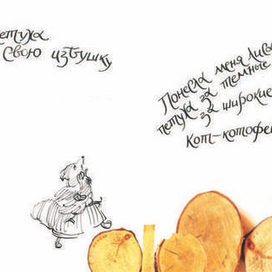 петуха
свою избушку
Понесла меня лиса
петуха за темные
за широкие
кот-котофе